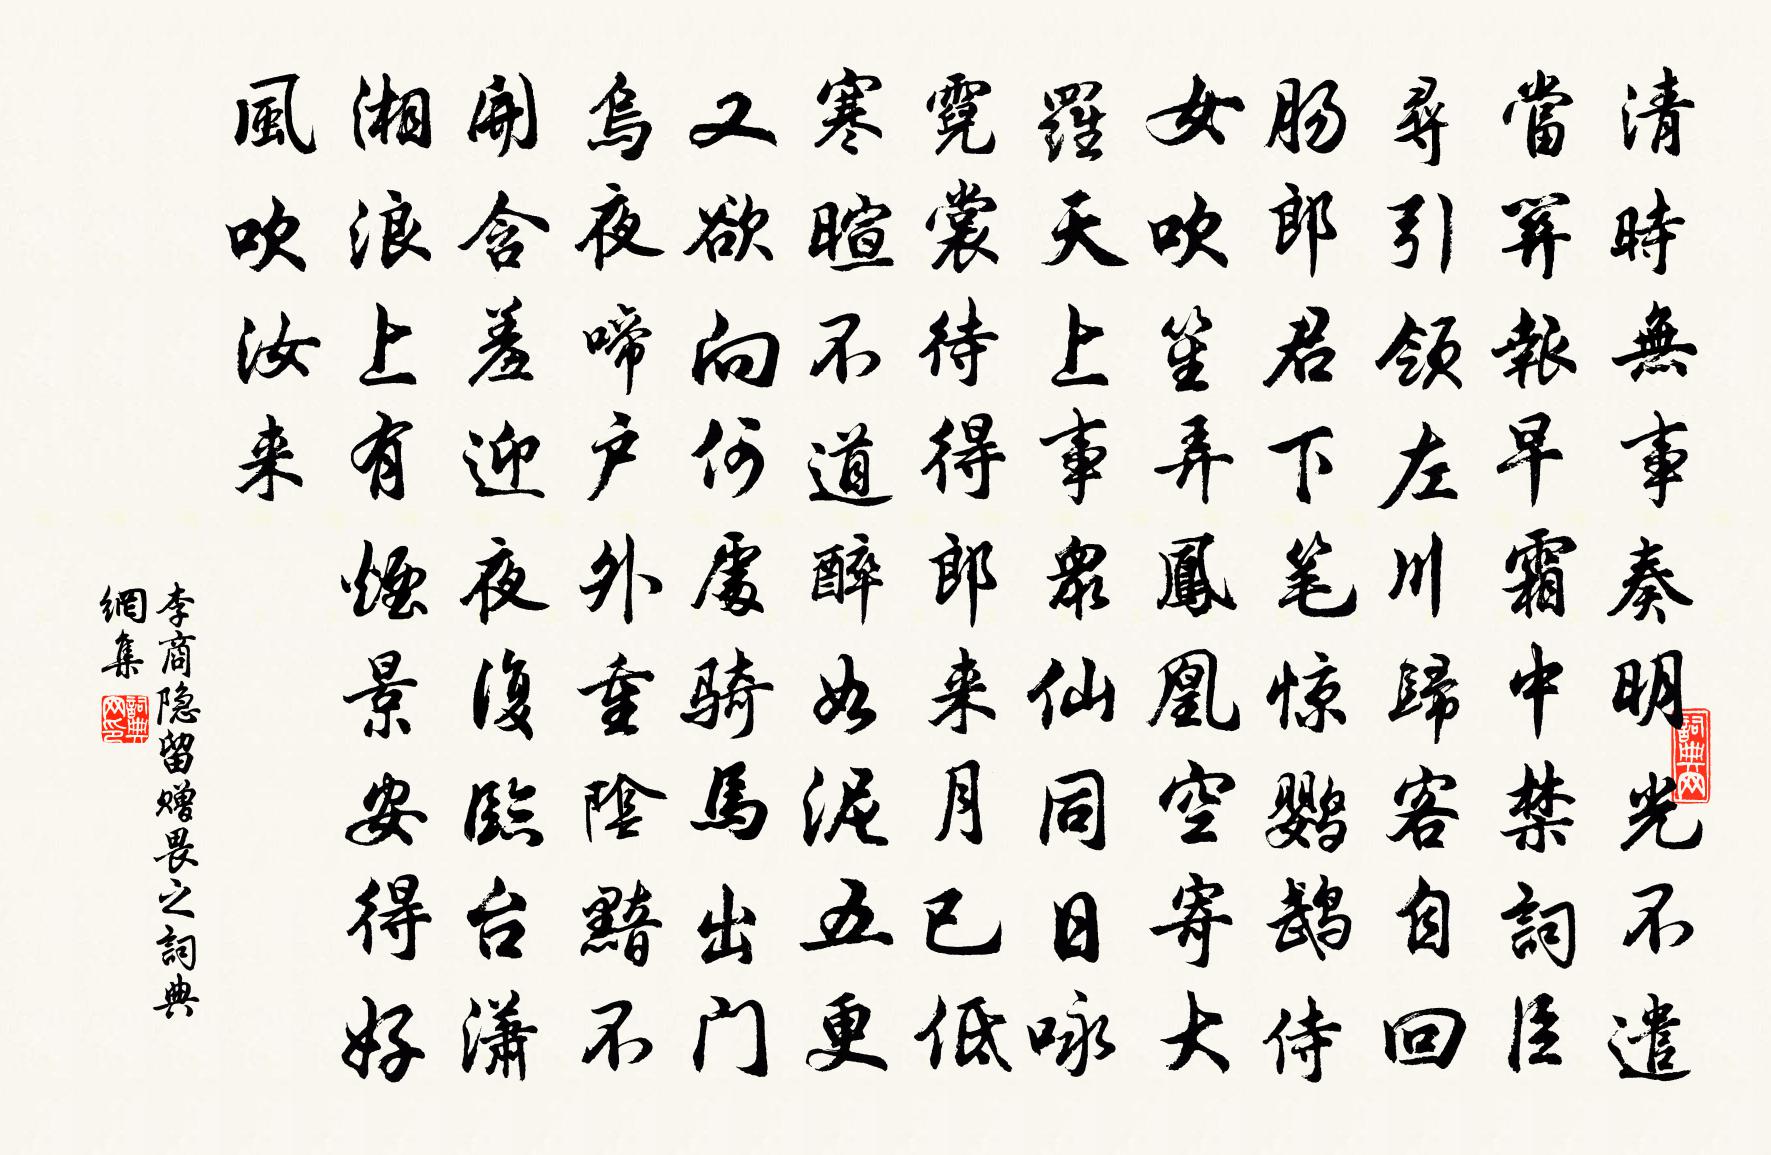 清時無事奏明光不遣
當關報早霜中禁詞臣
尋引領左川歸客自回
腸郎君下笔惊鹦鹉侍
女吹笙弄鳳凰空寄大
羅天上事衆仙同日咏
霓裳待得郎来月已低
寒暄不道醉如泥五更
又欲向何處骑馬出门
烏夜啼户外重陰黯不
開含羞迎夜復臨台潇
湘浪上有煙景安得好
風吹汝来
李商隐留赠畏之詞典
網集
詞典网
詞典网印